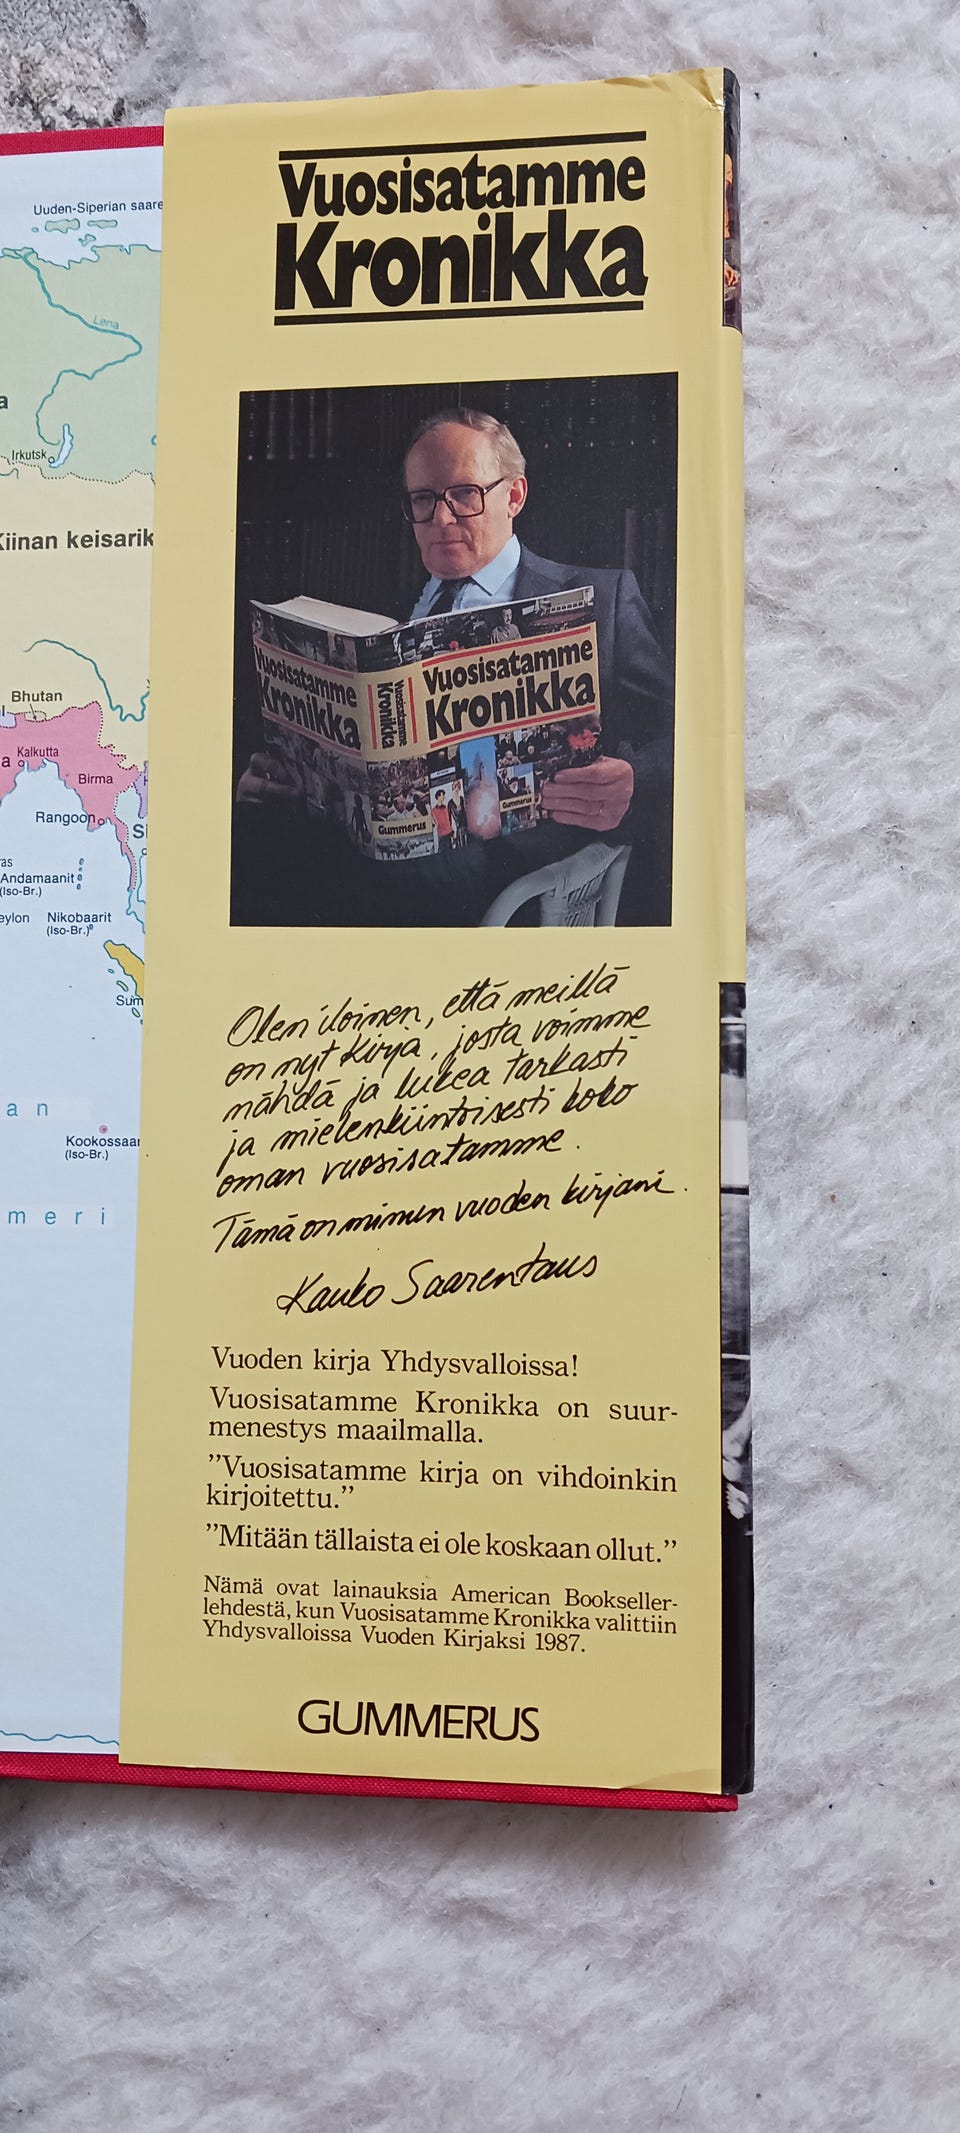 Uuden-Siperian saare
Lena
a
Irkutsk
Kiinan keisarik
Bhutan
Kalkutta
a
Birma
Rangoon
Andamaanit
(Iso-Br.)
eylon
Nikobaarit
(Iso-Br.)
Sum
a n
Kookossaar
(Iso-Br.)
m e r i
Vuosisatamme
Kronikka
Vuosisatamme
Kronikka
Vuosisatamme
Kronikka
Vuosisatamme
Kronikka
Gummerus
Gummerus
Olen iloinen, että meillä
on nyt kirja, josta voimme
nähdä ja lukea tarkasti
ja mielenkiintoisesti koko
oman vuosisatamme.
Tämä on minun vuoden kirjani.
Kauko Saarentaus
Vuoden kirja Yhdysvalloissa!
Vuosisatamme Kronikka on suur-
menestys maailmalla.
”Vuosisatamme kirja on vihdoinkin
kirjoitettu.”
”Mitään tällaista ei ole koskaan ollut.”
Nämä ovat lainauksia American Bookseller-
lehdestä, kun Vuosisatamme Kronikka valittiin
Yhdysvalloissa Vuoden Kirjaksi 1987.
GUMMERUS